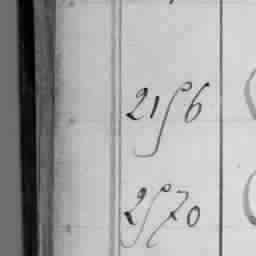 2156
2570